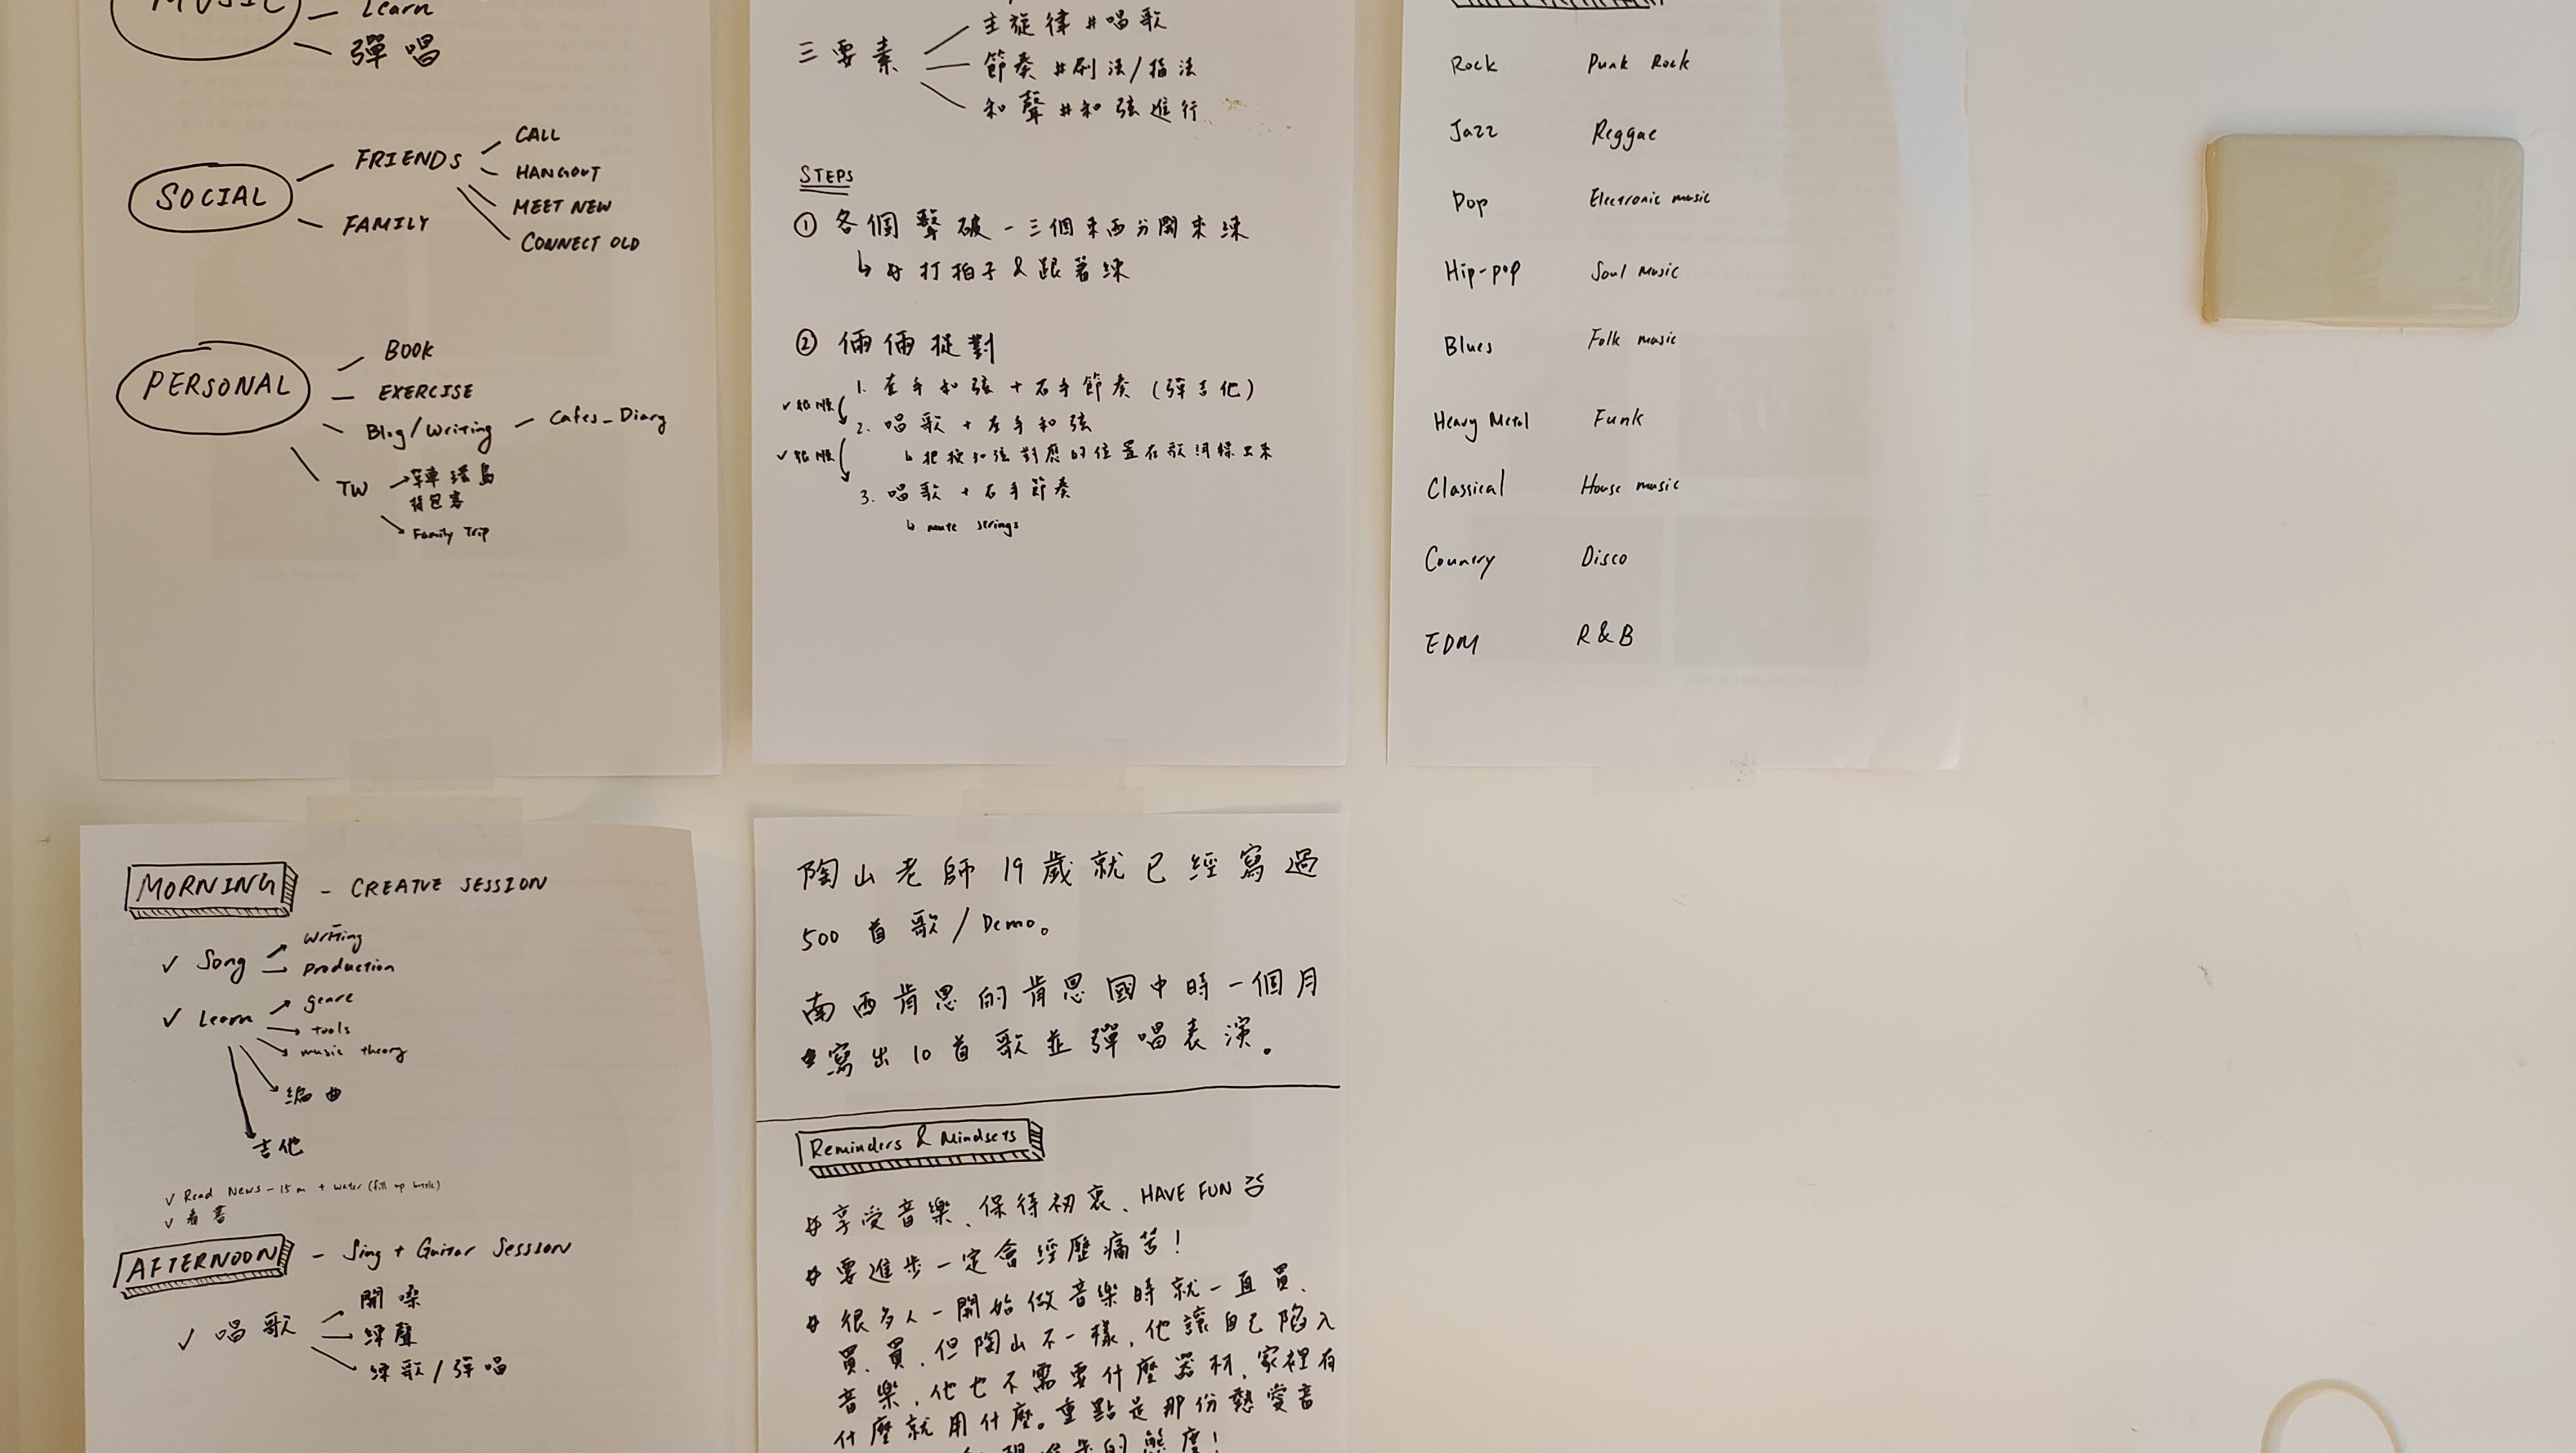 MUSIC
Learn
彈唱
SOCIAL
FRIENDS
CALL
HANGOUT
MEET NEW
CONNECT OLD
FAMILY
PERSONAL
BOOK
EXERCISE
Blog/Writing - Cafes_Diary
TW
單車環島
背包客
Family Trip
三要素
主旋律#唱歌
節奏#刷法/指法
和聲#和弦進行
STEPS
① 各個擊破 - 三個東西分開來練
打拍子 & 跟著練
② 倆倆捉對
1. 左手和弦 + 右手節奏 (彈吉他)
2. 唱歌 + 左手和弦
把按和弦對應的位置在歌詞標出來
3. 唱歌 + 右手節奏
mute strings
Rock Punk Rock
Jazz Reggae
Pop Electronic music
Hip-pop Soul music
Blues Folk music
Heavy Metal Funk
Classical House music
Country Disco
EDM R&B
MORNING - CREATVE SESSION
✓ Song
writing
production
✓ Learn
genre
tools
music theory
編曲
吉他
✓ Read News - 15m + water (fill up bottle)
✓ 看書
AFTERNOON - Sing + Guitar Session
✓ 唱歌
開嗓
練聲
練歌/彈唱
陶山老師19歲就已經寫過
500首歌/Demo。
南西肯恩的肯恩國中時一個月
寫出10首歌並彈唱表演。
Reminders & Mindsets
# 享受音樂、保持初衷、HAVE FUN
# 要進步一定會經歷痛苦!
# 很多人一開始做音樂時就一直買、
買、買,但陶山不一樣,他讓自己陷入
音樂,他也不需要什麼器材,家裡有
什麼就用什麼。重點是那份熱愛音
的態度!